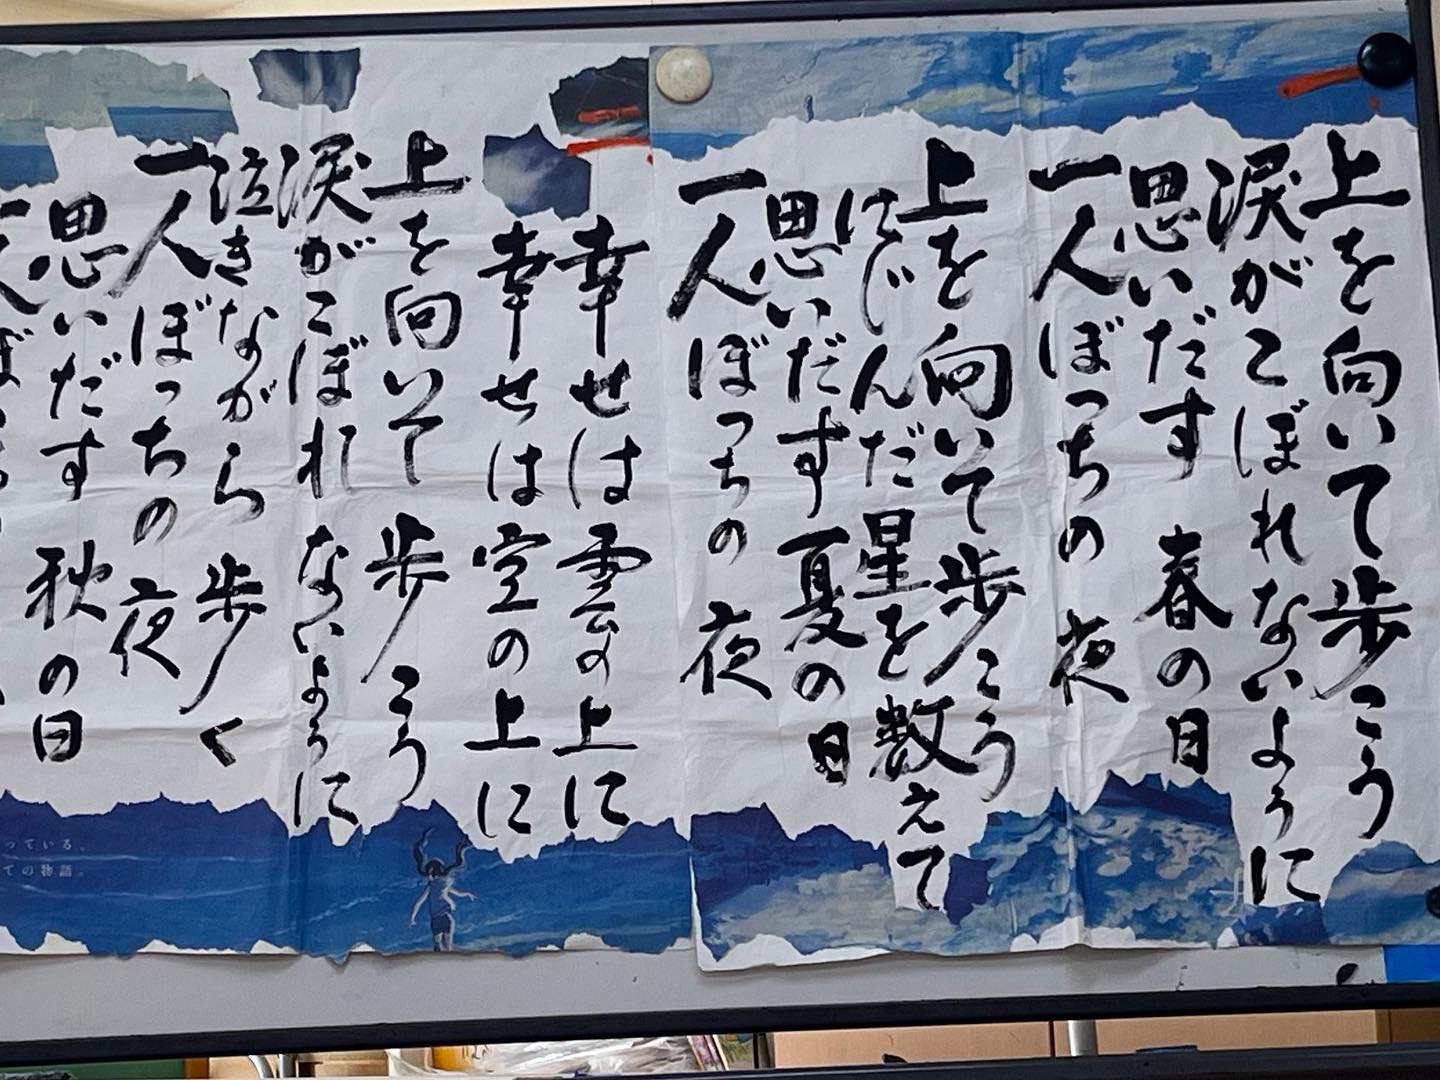 上を向いて歩こう
涙がこぼれないように
思いだす 春の日
一人ぼっちの 夜
上を向いて歩こう
にじんだ星を数えて
思いだす夏の日
一人ぼっちの 夜
幸せは雲の上に
幸せは空の上に
上を向いて 歩こう
涙がこぼれ ないように
泣きながら 歩く
一人ぼっちの 夜
思いだす 秋の日
一人ぼ
っている、
ての物語。